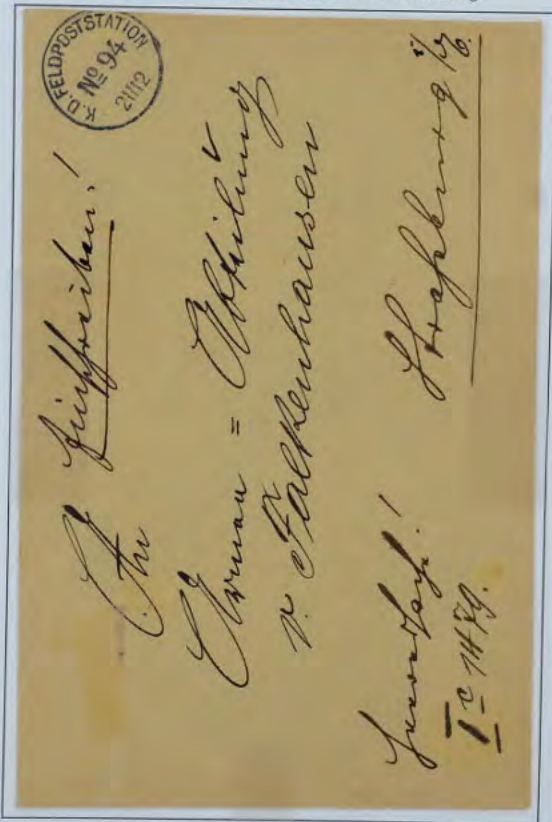 K.D. FELDPOSTSTATION
No 94
21112
Einschreiben!
An
Armee = Abteilung
v. Falkenhausen
Straßburg i/
Heeressache!
I c 1479.